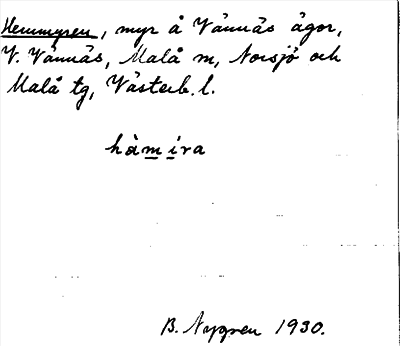 Hemmyren, myr å Vännäs ägor,
V. Vännäs, Malå m, Norsjö och
Malå tg, Västerb. l.
hàm̲i̲ra
B. Nygren 1930.